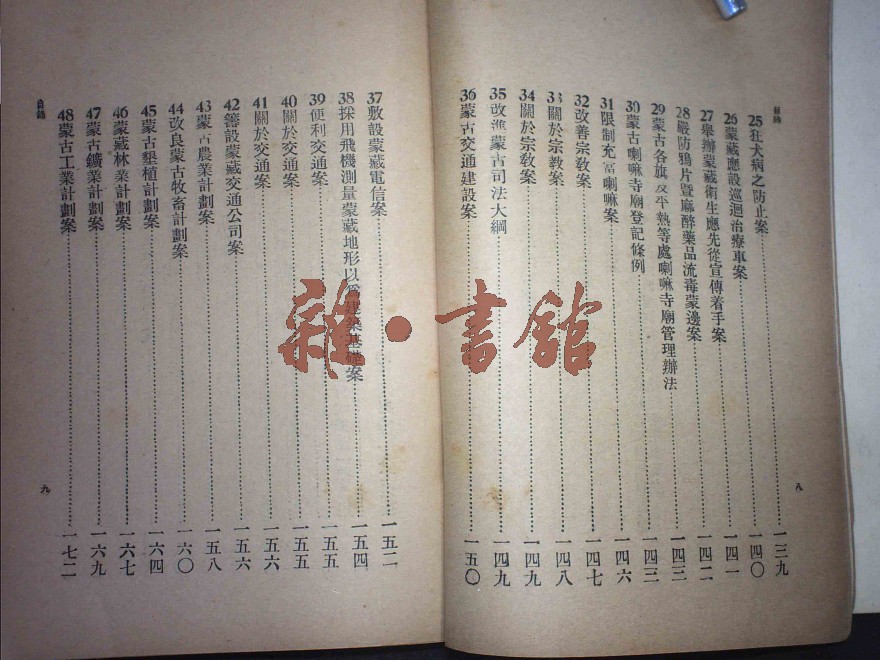 目錄
25狂犬病之防止案……一三九
26蒙藏應設巡迴治療車案……一四〇
27舉辦蒙藏衛生應先從宣傳着手案……一四一
28嚴防鴉片暨麻醉藥品流毒蒙邊案……一四二
29蒙古各旗及平熱等處喇嘛寺廟管理辦法……一四三
30蒙古喇嘛寺廟登記條例……一四三
31限制充當喇嘛案……一四六
32改善宗教案……一四七
33關於宗教案……一四八
34關於宗教案……一四九
35改進蒙古司法大綱……一四九
36蒙古交通建設案……一五〇
八
37敷設蒙藏電信案……一五二
38採用飛機測量蒙藏地形以爲建築基礎案……一五四
39便利交通案……一五五
40關於交通案……一五五
41關於交通案……一五六
42籌設蒙藏交通公司案……一五六
43蒙古農業計劃案……一五八
44改良蒙古牧畜計劃案……一六〇
45蒙古墾植計劃案……一六四
46蒙藏林業計劃案……一六七
47蒙古鑛業計劃案……一六九
48蒙古工業計劃案……一七二
目錄
九
雜·書館